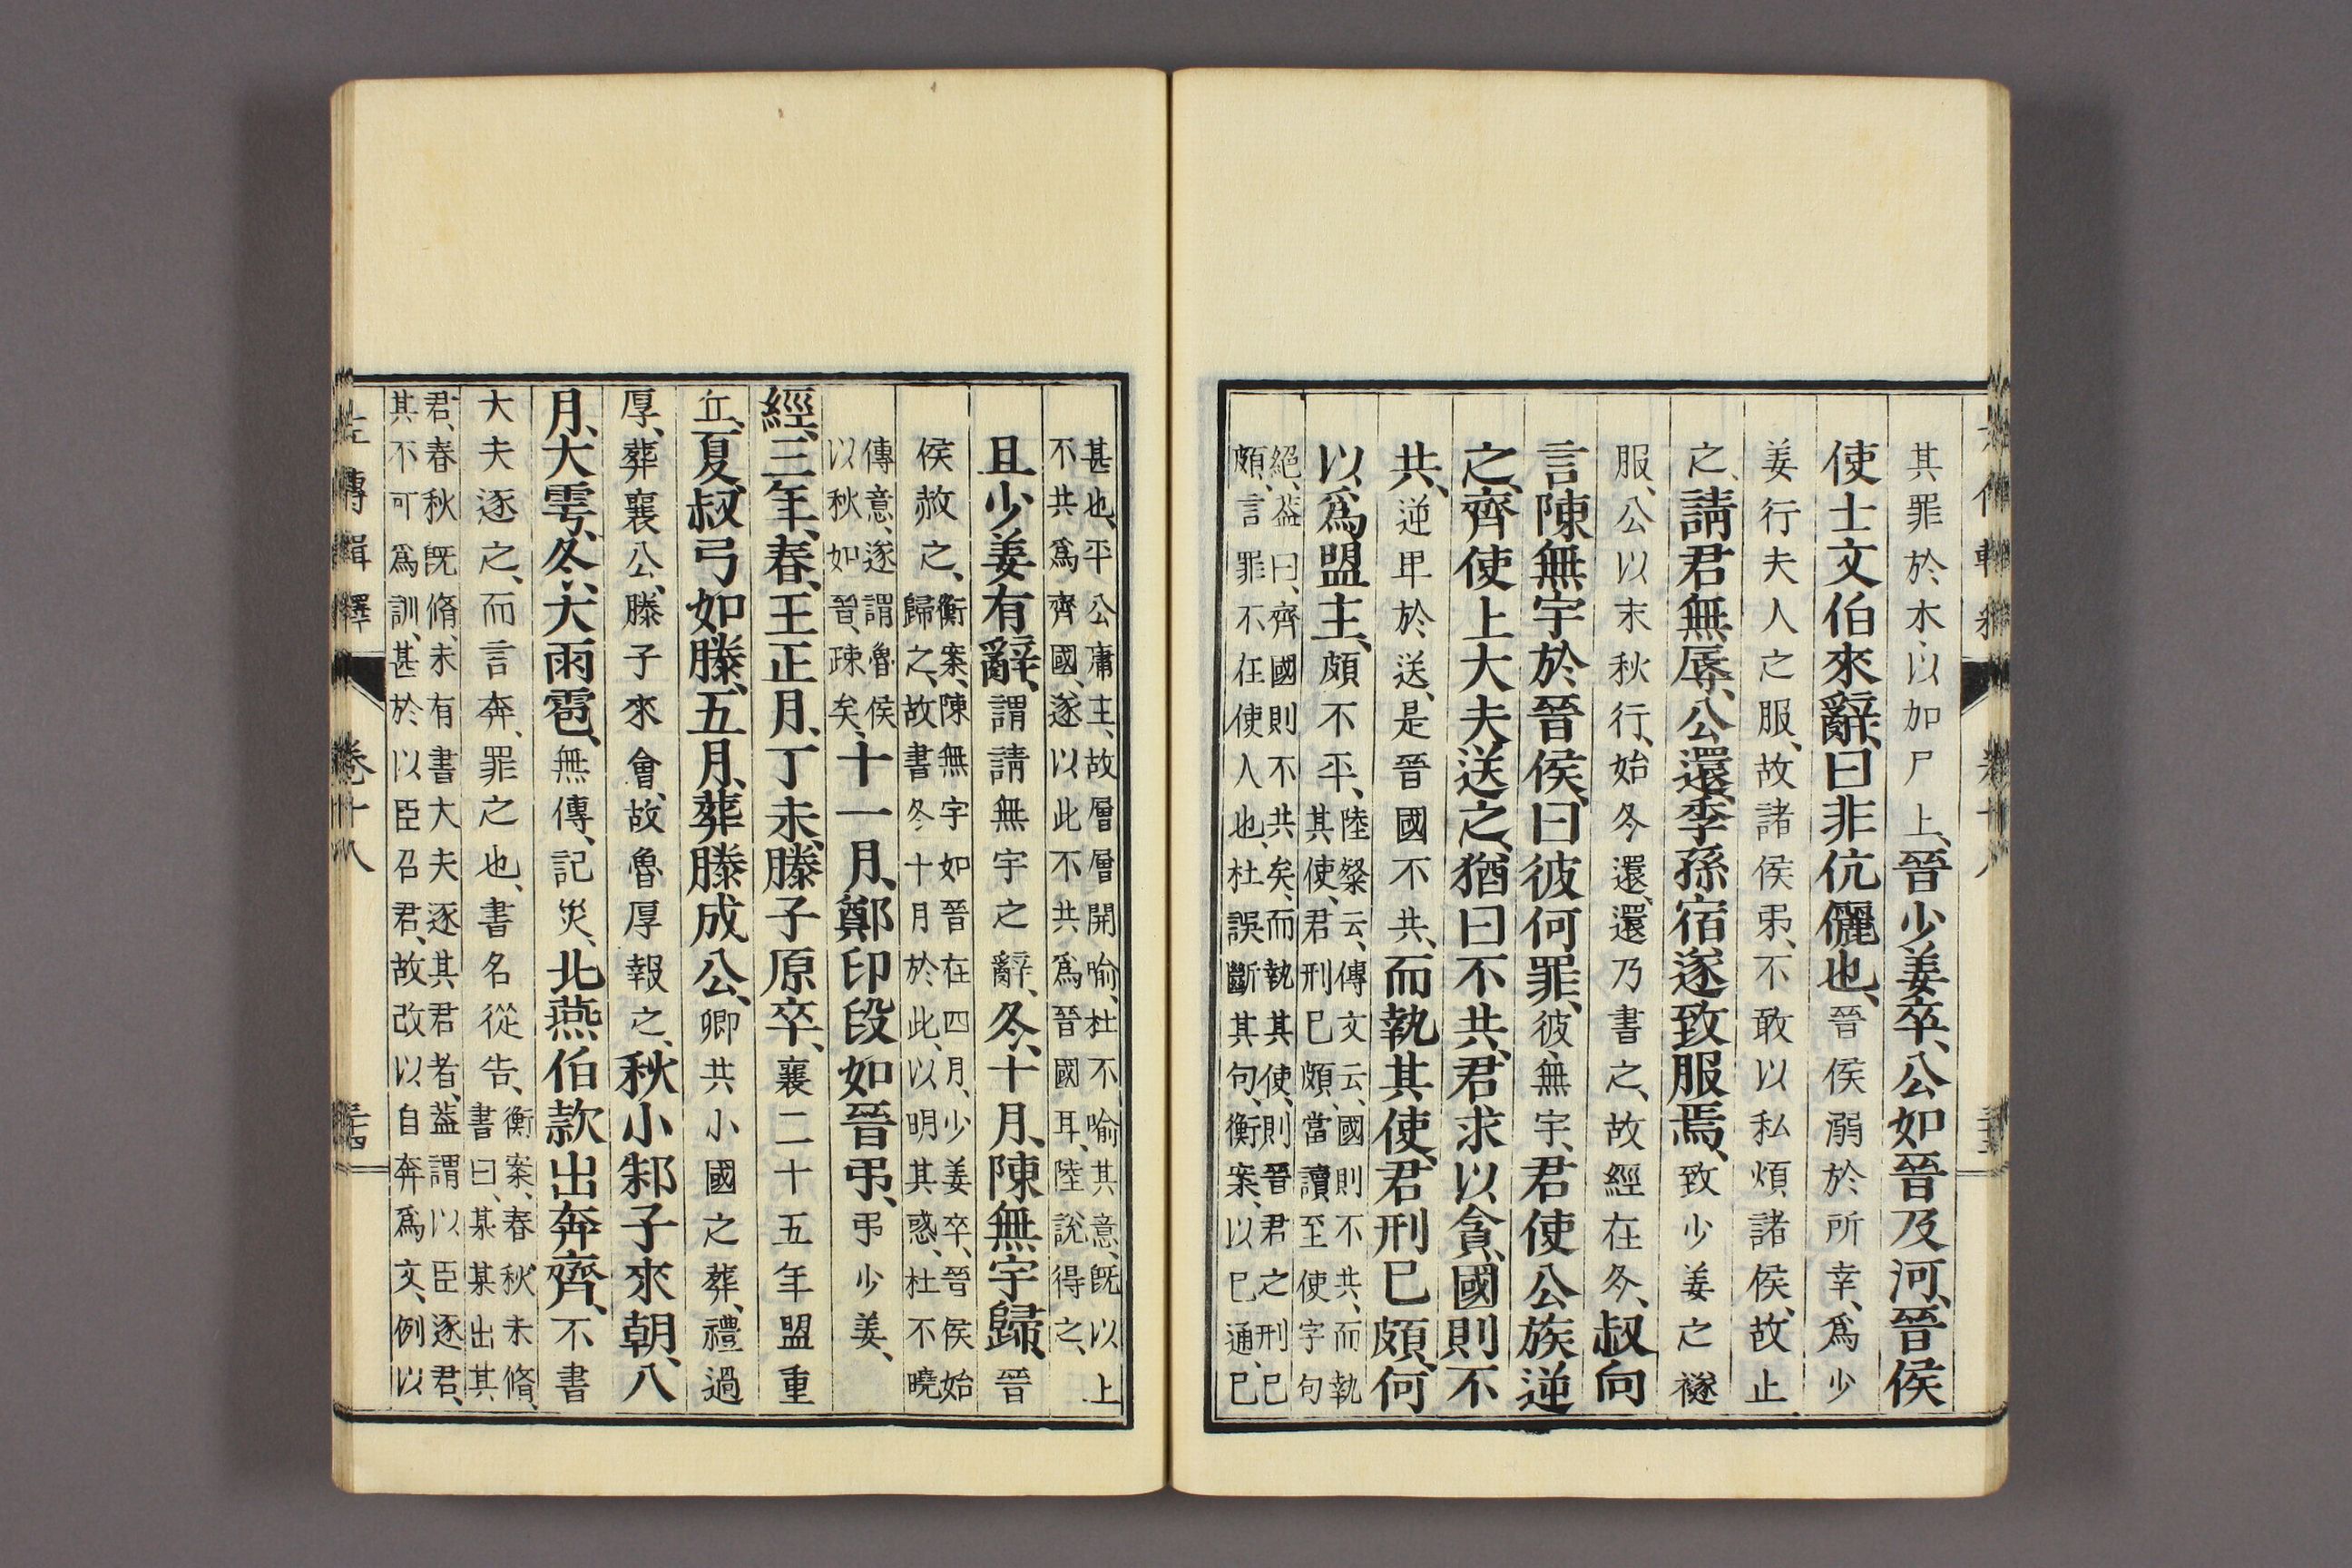 其罪於木、以加尸上、晉少姜卒、公如晉及河、晉侯
使士文伯來辭、曰非伉儷也、晉侯溺於所幸、爲少
姜行夫人之服、故諸侯弔、不敢以私煩諸侯、故止
之、請君無辱、公還、季孫宿遂致服焉、致少姜之襚
服、公以末秋行、始冬還、還乃書之、故經在冬、叔向
言陳無宇於晉侯、曰彼何罪、彼、無宇、君使公族逆
之、齊使上大夫送之、猶曰不共、君求以貪、國則不
共、逆卑於送、是晉國不共、而執其使、君刑已頗、何
以爲盟主、頗不平、陸粲云、傳文云、國則不共、而執
其使、君刑已頗、當讀至使字句
絕、葢曰、齊國則不共矣、而執其使、則晉君之刑已
頗、言罪不在使人也、杜誤斷其句、衡案、以已通、已
甚也、平公庸主、故層層開喻、杜不喻其意、旣以上
不共爲齊國、遂以此不共爲晉國耳、陸說得之、
且少姜有辭、謂請無宇之辭、冬、十月、陳無宇歸、晉
侯赦之、衡案、陳無宇如晉在四月、少姜卒、晉侯始
歸之、故書冬十月於此、以明其惑、杜不曉
傳意、遂謂魯侯
以秋如晉、疎矣、十一月、鄭印段如晉弔、弔少姜、
經、三年、春、王正月、丁未、滕子原卒、襄二十五年盟重
丘、夏、叔弓如滕、五月、葬滕成公、卿共小國之葬、禮過
厚、葬襄公、滕子來會、故魯厚報之、秋小邾子來朝、八
月、大雩、冬、大雨雹、無傳、記災、北燕伯款出奔齊、不書
大夫逐之、而言奔、罪之也、書名從告、衡案、春秋未脩、
書曰、某某出其
君、春秋旣脩、未有書大夫逐其君者、葢謂以臣逐君、
其不可爲訓、甚於以臣召君、故改以自奔爲文、例以
左傳輯釋 卷十八